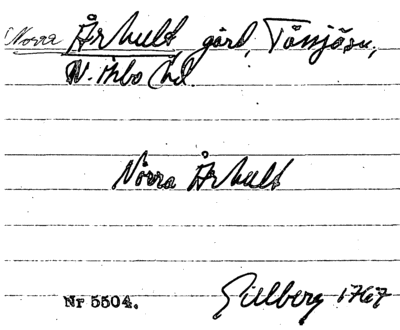 Norra Århult gård, Tåssjösn,
N. Åsbo hd.
Norra Århult
Nr 5504. Gillberg 1767